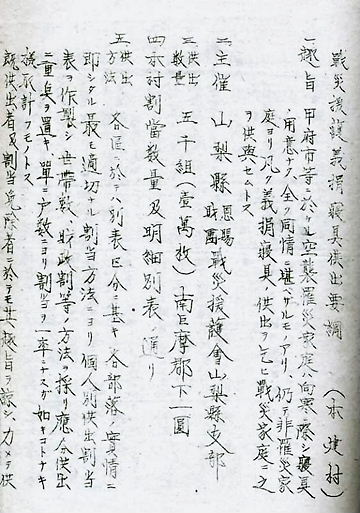 戰災援護義捐寝具供出要綱 (本建村)
一、趣旨 甲府市等ニ於ケル空襲罹災家庭ハ向寒ニ際シ寝具
ノ用意ナク全ク同情ニ堪ヘザルモノアリ、仍テ非罹災家
庭ヨリ凡ク義捐寝具ノ供出ヲ乞ヒ戰災家庭ニ之
ヲ供與セムトス
二、主催 山梨縣 恩賜財團戰災援護會山梨縣支部
三、供出數量 五千組(壹萬枚)南巨摩郡下一圓
四、本村割當數量及明細別表ノ通リ
五、供出方法 各區ニ於テハ別表區分ニ基キ各部落ノ實情ニ
即シタル最モ適切ナル割當方法ニヨリ個人別供出割當
表ヲ作製シ世帶數、財政割等ノ方法ヲ採リ應分供出
ニ重臭ヲ置キ單ニ戸數ニヨリ割當ヲ一率ニナスガ如キコトナキ
樣取計フモノトス
既供出者及割當免除者ニ於テモ其ノ趣旨ヲ諒シ力メテ供